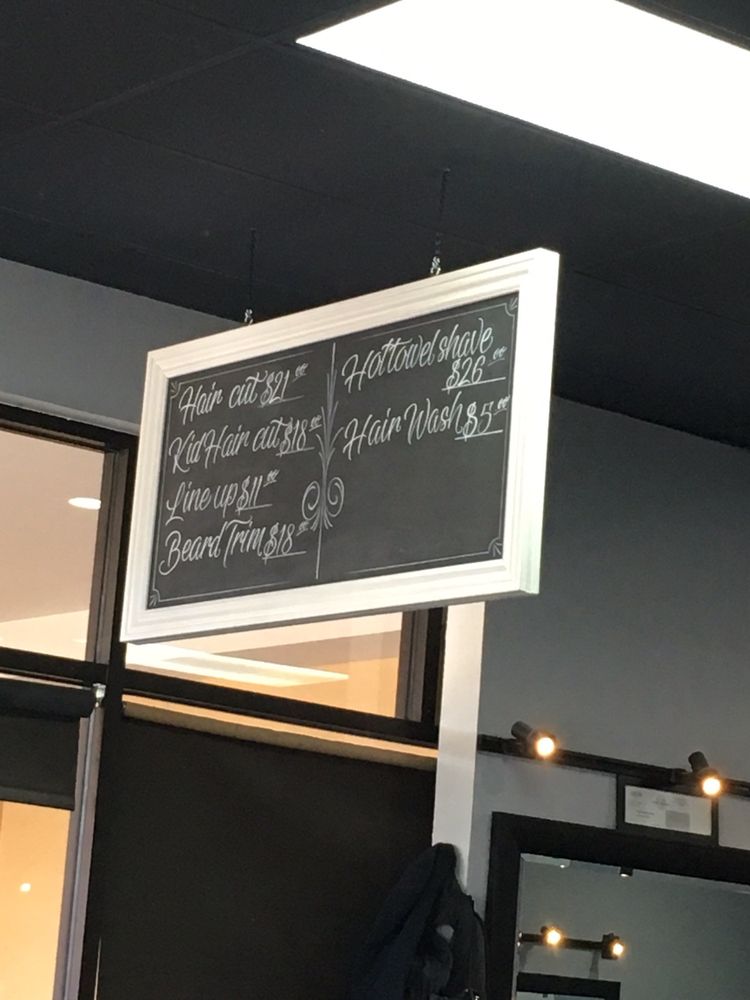 Hair cut $21.00
Kid Hair cut $18.00
Line up $11.00
Beard Trim $18.00
Hot towel shave
$26.00
Hair Wash $5.00